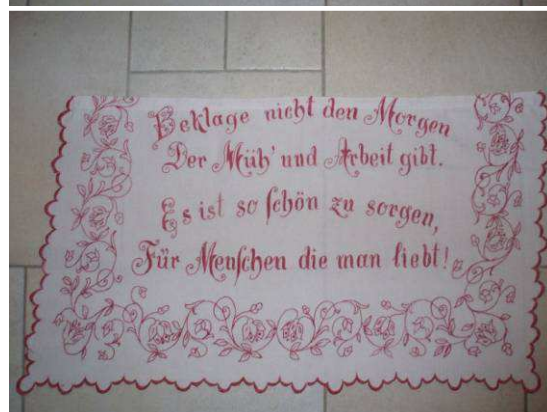 Beklage nicht den Morgen
Der Müh' und Arbeit gibt.
Es ist so schön zu sorgen,
Für Menschen die man liebt!